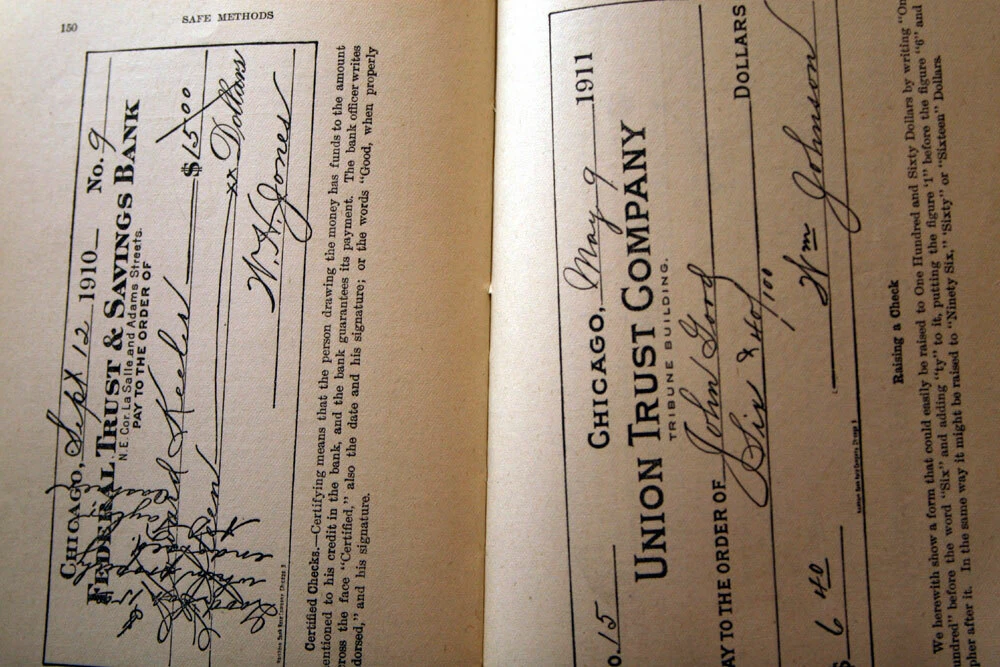 150
SAFE METHODS
CHICAGO, Sept 12 1910 No. 9
FEDERAL TRUST & SAVINGS BANK
N. E. Cor. La Salle and Adams Streets.
PAY TO THE ORDER OF
Keeler $15 00
xx Dollars
W. H. Jones
Certified Checks.—Certifying means that the person drawing the money has funds to the amount
entioned to his credit in the bank, and the bank guarantees its payment. The bank officer writes
ross the face "Certified," also the date and his signature; or the words "Good, when properly
dorsed," and his signature.
o. 15 CHICAGO, May 9 1911
UNION TRUST COMPANY
TRIBUNE BUILDING.
PAY TO THE ORDER OF John Good
Six & 40/100 DOLLARS
$ 6 40 Wm Johnson
Raising a Check
We herewith show a form that could easily be raised to One Hundred and Sixty Dollars by writing "On
undred" before the word "Six" and adding "ty" to it, putting the figure "1" before the figure "6" and
pher after it. In the same way it might be raised to "Ninety Six," "Sixty" or "Sixteen" Dollars.